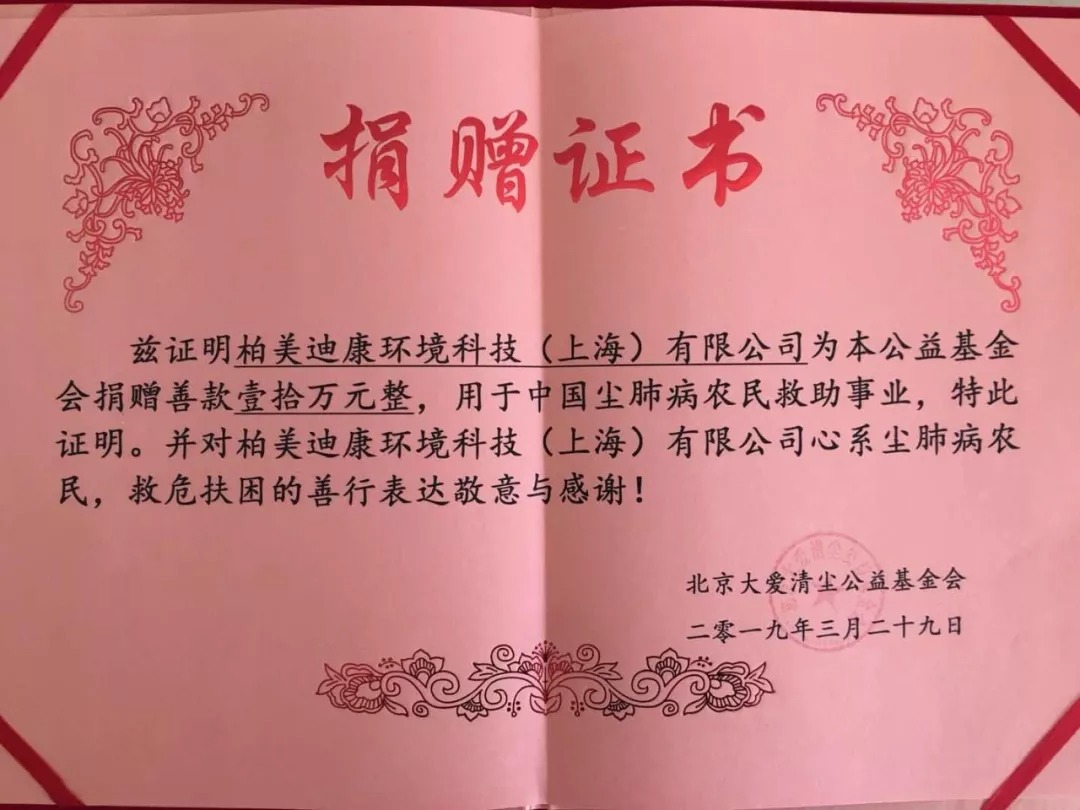 捐赠证书
兹证明柏美迪康环境科技（上海）有限公司为本公益基金
会捐赠善款壹拾万元整，用于中国尘肺病农民救助事业，特此
证明。并对柏美迪康环境科技（上海）有限公司心系尘肺病农
民，救危扶困的善行表达敬意与感谢！
北京大爱清尘公益基金会
二零一九年三月二十九日